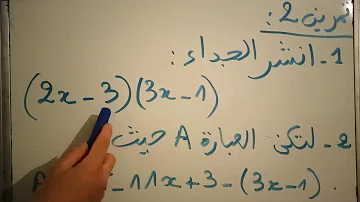 تمرين 2:
1- انشر الجداء:
(2x - 3)(3x - 1)
2- لتكن العبارة A حيث
A - 11x + 3 - (3x - 1).